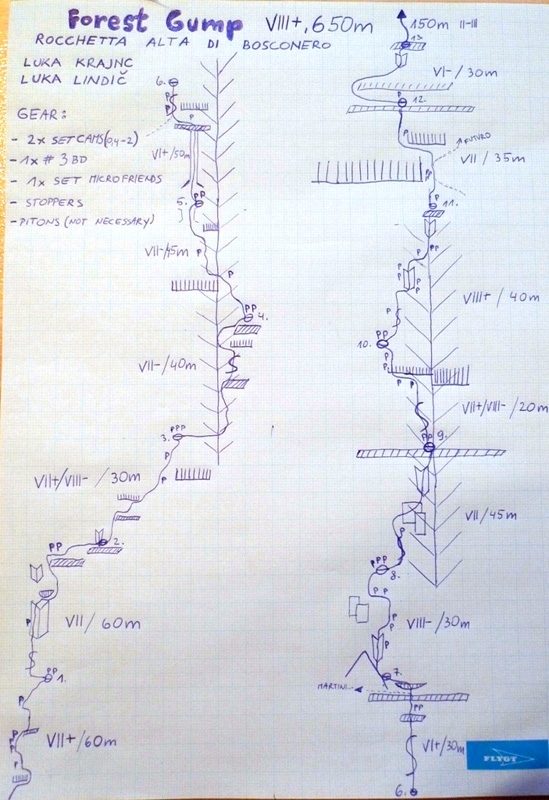 Forest Gump VIII+, 650m
ROCCHETTA ALTA DI BOSCONERO
LUKA KRAJNC
LUKA LINDIČ
GEAR:
- 2x SET CAMS (0,4-2)
- 1x # 3 BD
- 1x SET MICROFRIENDS
- STOPPERS
- PITONS (NOT NECESSARY)
6.
P
P
P
VI+/50m
5.
PP
VII-/45m
P
P
PP
4.
VII-/40m
PPP
3.
P
P
VII+/VIII-/30m
2.
PP
VII/60m
P
PP
1.
P
P
P
VII+/60m
150m II-III
13.
VI-/30m
P
12.
P
FUTURO
VII/35m
PP
11.
PP
P
P
P
P
P
VIII+/40m
P
PP
10.
P
P
P
VII+/VIII-/20m
PP
9.
VII/45m
PPP
8.
P
P
P
VIII-/30m
P
7.
MARTINI
PP
VI+/30m
6.
FLYGT